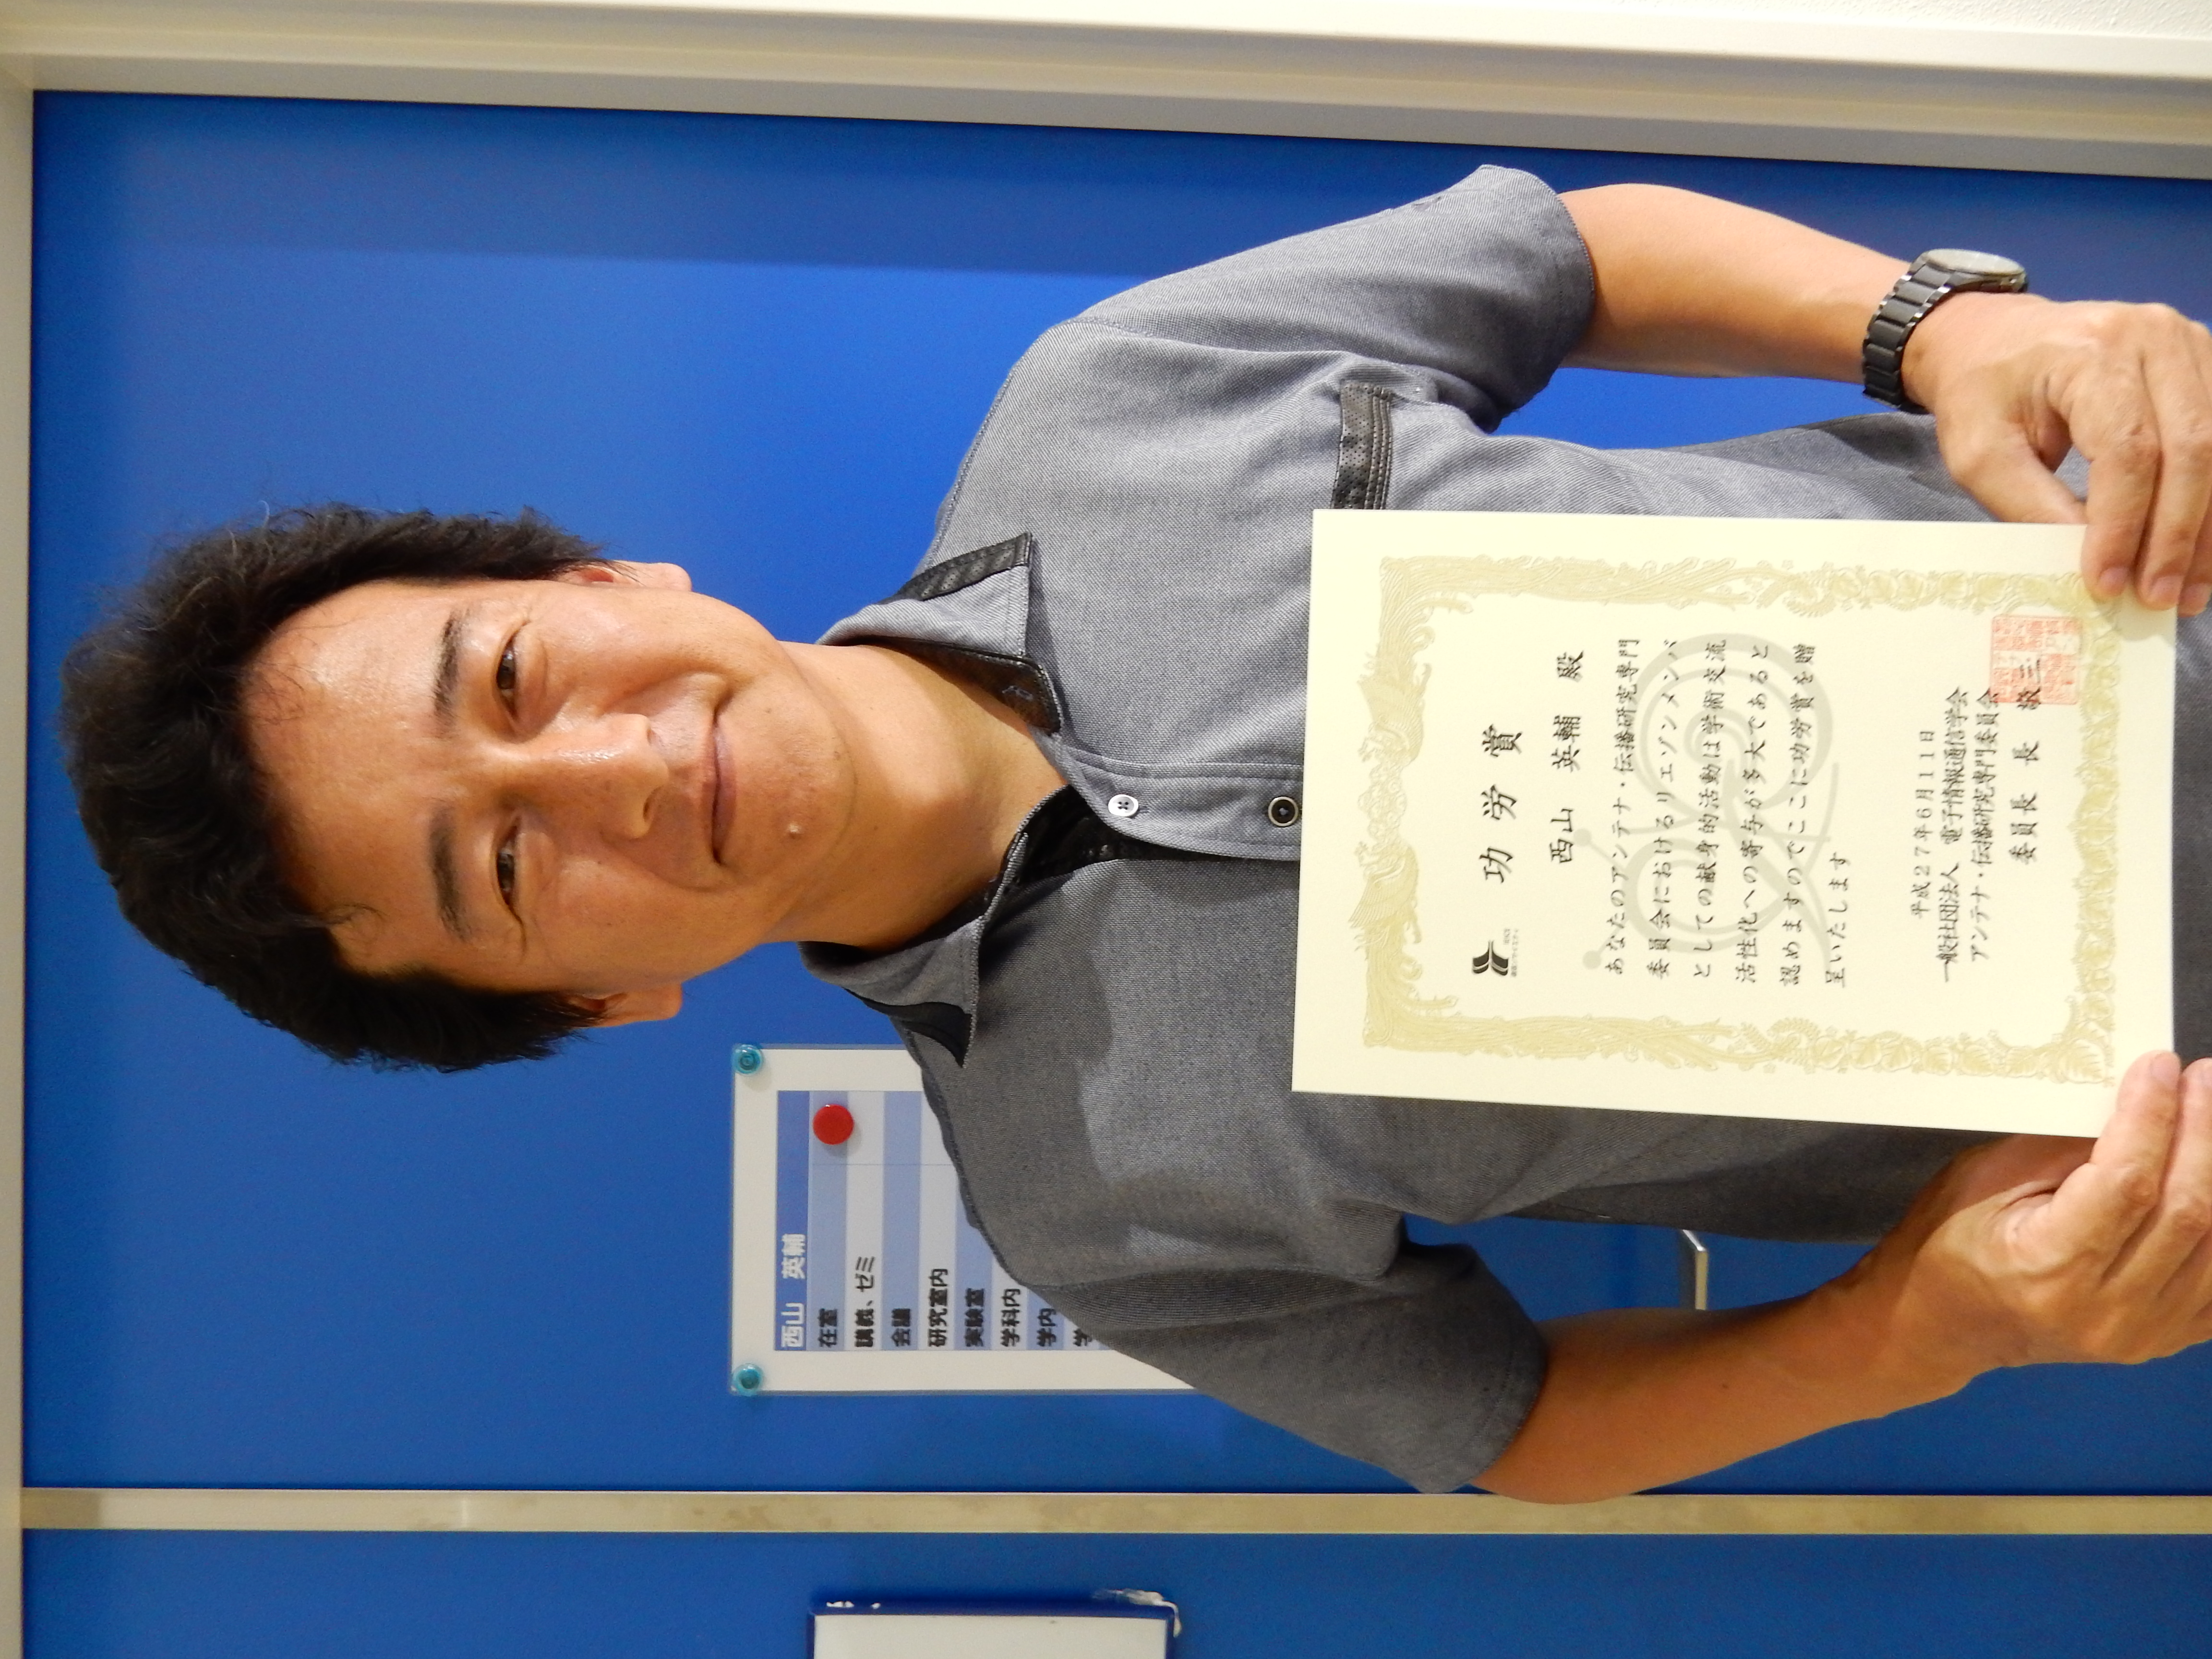 西山 英輔
在室
講義、ゼミ
会議
研究室内
実験室
学科内
学内
学
功労賞
西山 英輔 殿
あなたのアンテナ・伝播研究専門
委員会におけるリエゾンメンバ
としての献身的活動は学術交流
活性化への寄与が多大であると
認めますのでここに功労賞を贈
呈いたします
平成27年6月11日
一般社団法人 電子情報通信学会
アンテナ・伝播研究専門委員会
委員長 長 敬三